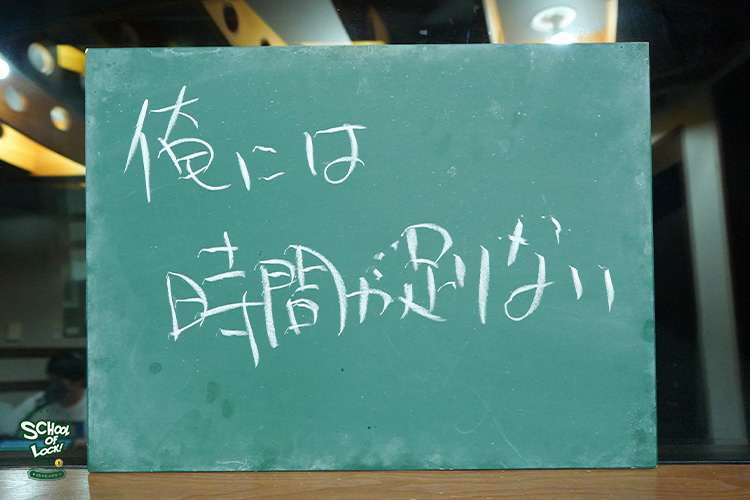 俺には
時間が足りない
SCHOOL
OF
LOCK!